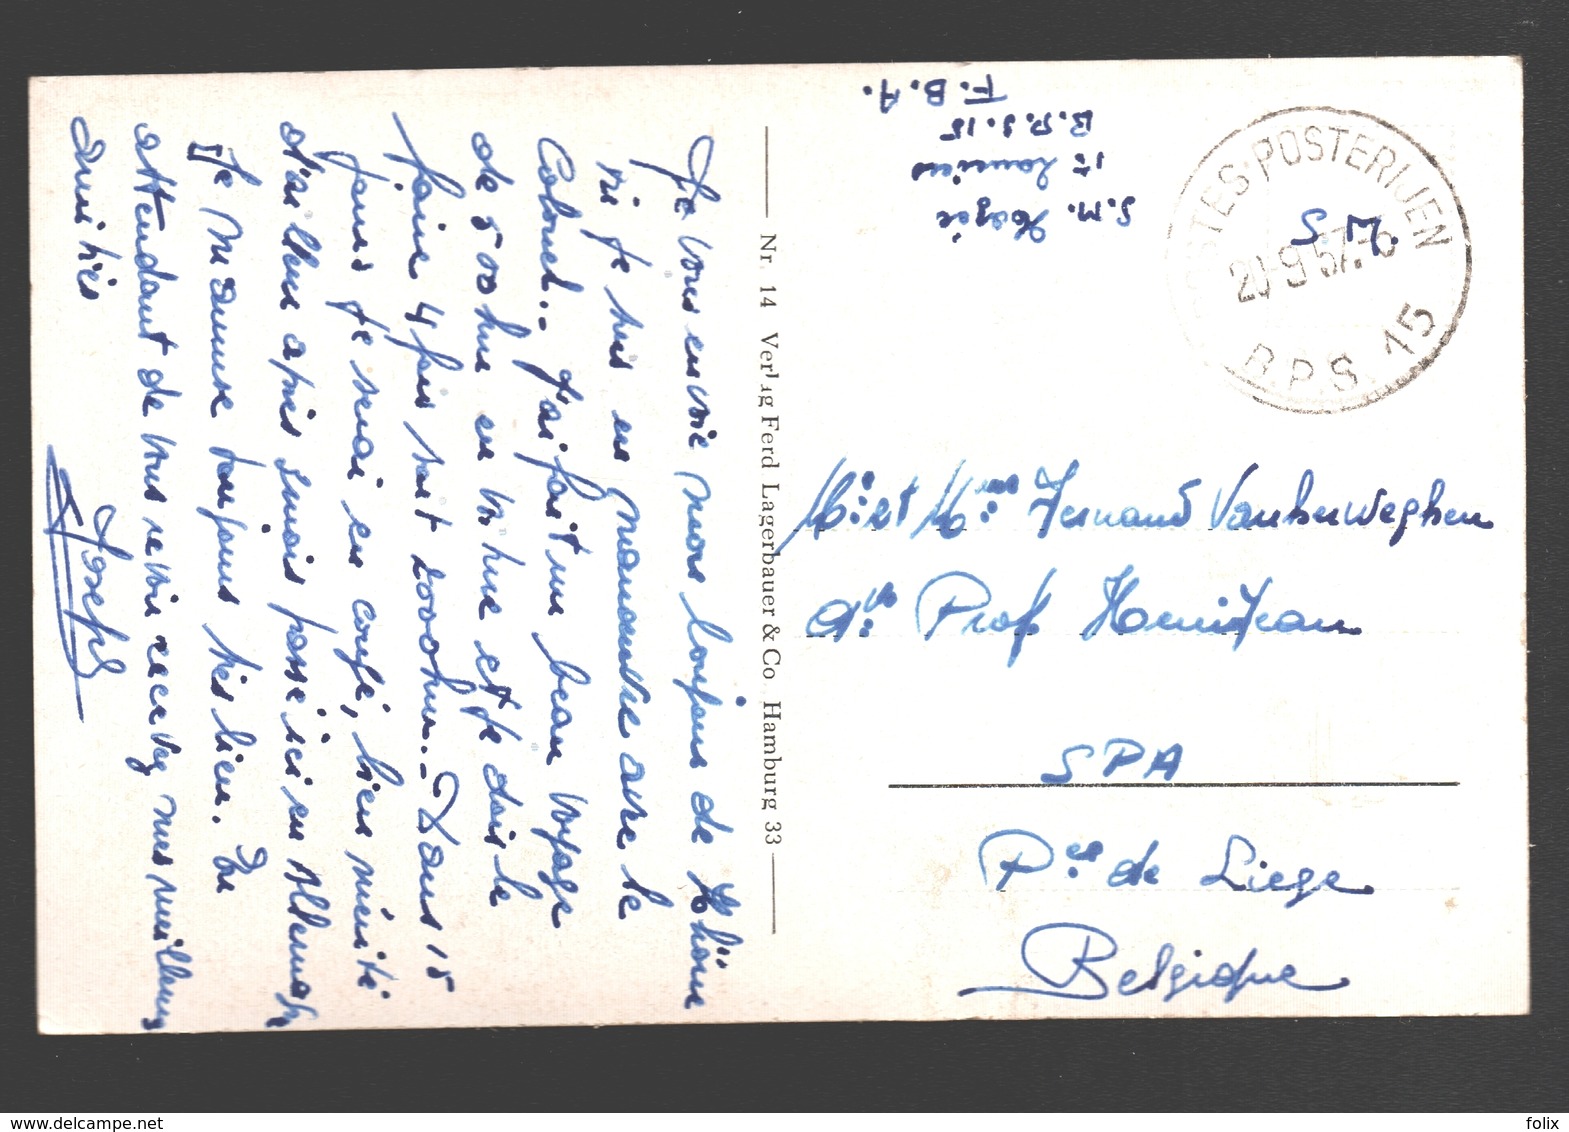 Je vous envoie mon bonjour de
où je suis en manœuvre avec le
Colonel. - J'ai fait un beau voyage
de 500 km en
et je dois le
faire 4 fois soit 2000 km. - Dans 15
jours je serai en congé, bien mérité
d'ailleurs après 5 mois passé ici en Allemagne
Je m'amuse toujours très bien. En
attendant de vous revoir recevez mes meilleures
amitiés
Joseph
Nr. 14 Verlag Ferd Lagerbauer & Co Hamburg 33
S.M.
1er Lanciers
B.P.S. 15
F.B.A.
POSTES-POSTERIJEN
20-9 57
B.P.S. 15
Mr et Mme Fernand Vanherweghen
Av. Prof. Henrijean
SPA
Pce de Liege
Belgique
felix